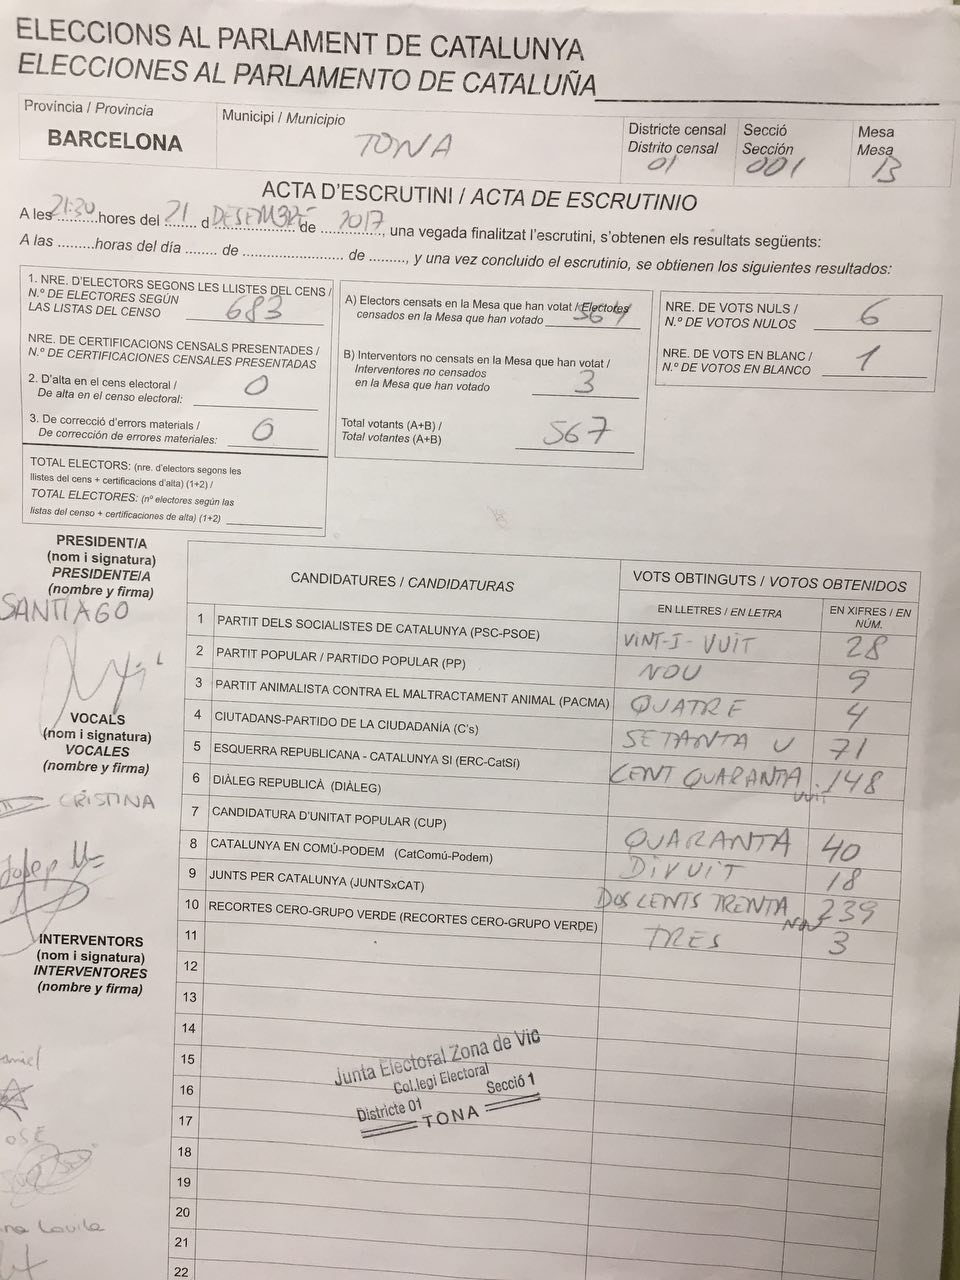 ELECCIONS AL PARLAMENT DE CATALUNYA
ELECCIONES AL PARLAMENTO DE CATALUÑA
Província / Provincia
BARCELONA
Municipi / Municipio
TONA
Districte censal
Distrito censal
01
Secció
Sección
001
Mesa
Mesa
B
ACTA D'ESCRUTINI / ACTA DE ESCRUTINIO
A les 21:30 hores del 21 d DESEMBRE de 2017, una vegada finalitzat l'escrutini, s'obtenen els resultats següents:
A las .........horas del día ........ de ......................... de ........., y una vez concluido el escrutinio, se obtienen los siguientes resultados:
1. NRE. D'ELECTORS SEGONS LES LLISTES DEL CENS /
N.º DE ELECTORES SEGÚN
LAS LISTAS DEL CENSO
683
NRE. DE CERTIFICACIONS CENSALS PRESENTADES /
N.º DE CERTIFICACIONES CENSALES PRESENTADAS
2. D'alta en el cens electoral /
De alta en el censo electoral:
0
3. De correcció d'errors materials /
De corrección de errores materiales:
0
TOTAL ELECTORS: (nre. d'electors segons les
llistes del cens + certificacions d'alta) (1+2) /
TOTAL ELECTORES: (nº electores según las
listas del censo + certificaciones de alta) (1+2)
A) Electors censats en la Mesa que han votat / Electores
censados en la Mesa que han votado
564
B) Interventors no censats en la Mesa que han votat /
Interventores no censados
en la Mesa que han votado
3
Total votants (A+B) /
Total votantes (A+B)
567
NRE. DE VOTS NULS /
N.º DE VOTOS NULOS
6
NRE. DE VOTS EN BLANC /
N.º DE VOTOS EN BLANCO
1
PRESIDENT/A
(nom i signatura)
PRESIDENTE/A
(nombre y firma)
SANTIAGO
VOCALS
(nom i signatura)
VOCALES
(nombre y firma)
CRISTINA
Josep
INTERVENTORS
(nom i signatura)
INTERVENTORES
(nombre y firma)
CANDIDATURES / CANDIDATURAS
VOTS OBTINGUTS / VOTOS OBTENIDOS
EN LLETRES / EN LETRA
EN XIFRES / EN
NÚM.
1 PARTIT DELS SOCIALISTES DE CATALUNYA (PSC-PSOE) VINT-I-VUIT 28
2 PARTIT POPULAR / PARTIDO POPULAR (PP) NOU 9
3 PARTIT ANIMALISTA CONTRA EL MALTRACTAMENT ANIMAL (PACMA) QUATRE 4
4 CIUTADANS-PARTIDO DE LA CIUDADANÍA (C's) SETANTA U 71
5 ESQUERRA REPUBLICANA - CATALUNYA SI (ERC-CatSí) CENT QUARANTA VUIT 148
6 DIÀLEG REPUBLICÀ (DIÀLEG)
7 CANDIDATURA D'UNITAT POPULAR (CUP) QUARANTA 40
8 CATALUNYA EN COMÚ-PODEM (CatComú-Podem) DIVUIT 18
9 JUNTS PER CATALUNYA (JUNTSxCAT) DOSCENTS TRENTA NOU 239
10 RECORTES CERO-GRUPO VERDE (RECORTES CERO-GRUPO VERDE) TRES 3
11
12
13
14
15
16
17
18
19
20
21
22
Junta Electoral Zona de Vic
Col.legi Electoral
Districte 01 Secció 1
TONA